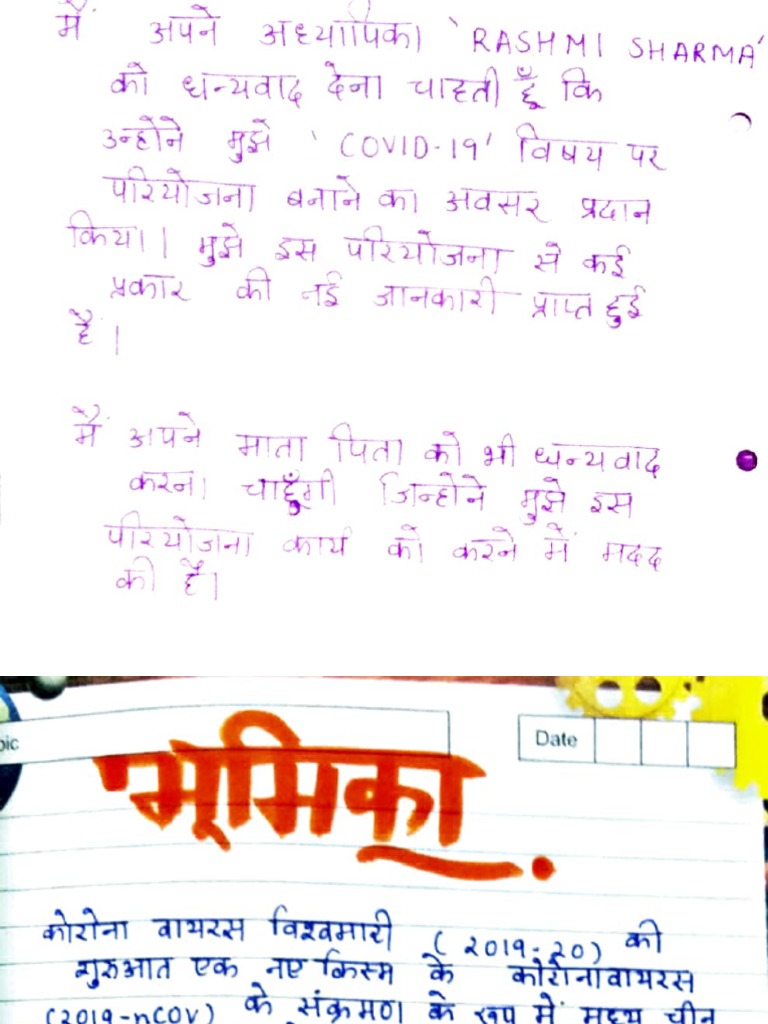 मैं अपने अध्यापिका 'RASHMI SHARMA'
को धन्यवाद देना चाहती हूँ कि
उन्होने मुझे 'COVID-19' विषय पर
परियोजना बनाने का अवसर प्रदान
किया। मुझे इस परियोजना से कई
प्रकार की नई जानकारी प्राप्त हुई
है।
मैं अपने माता पिता को भी धन्यवाद
करना चाहूँगी जिन्होने मुझे इस
परियोजना कार्य को करने में मदद
की है।
pic
Date
भूमिका
कोरोना वायरस विश्वमारी (2019-20) की
शुरुआत एक नए किस्म के कोरोनावायरस
(2019-nCOV) के संक्रमण के रूप में मध्य चीन